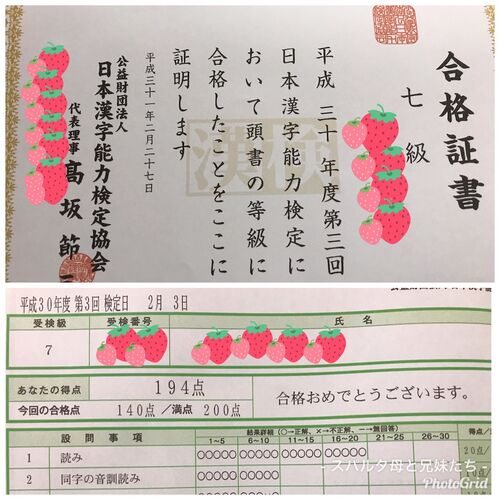 合格証書
七級
平成三十年度第三回
日本漢字能力検定に
おいて頭書の等級に
合格したことをここに
証明します
漢検
平成三十一年二月二十七日
公益財団法人
日本漢字能力検定協会
代表理事 髙坂節
平成30年度 第3回 検定日 2月 3日
受検級 受検番号 氏名
7
あなたの得点 194点
今回の合格点 140点 /満点 200点
合格おめでとうございます。
設問事項
結果詳細 (○→正解、×→不正解、ー→無回答)
1~5 6~10 11~15 16~20 21~25 26~30 得点/
1 読み ○○○○○ ○○○○○ ○○○○○ ○○○○○ 20点/
2 同字の音訓読み ○○○○○ ○○○○○ 10点
- スパルタ母と兄妹たち -
PhotoGrid